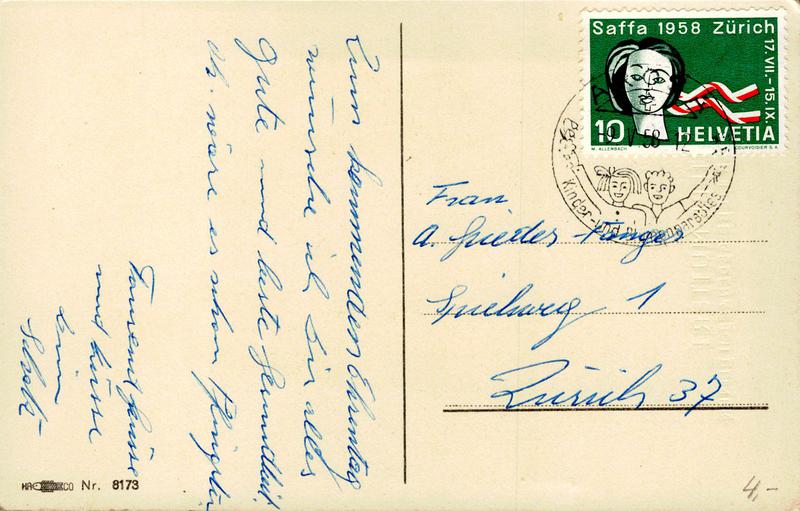 Zum kommenden Ehrentag
wünsche ich Dir alles
Gute und beste Gesundheit.
Oh, wäre es schon Pfingsten
Tausend Grüsse
und Küsse
Dein
Saffa 1958 Zürich
17.VII.-15.IX.
10 HELVETIA
M. ALLENBACH
COURVOISIER S.A.
V 58-12
Kinder- und
Frau
A.
Spielweg 1
Zürich 37
Nr. 8173
4,-